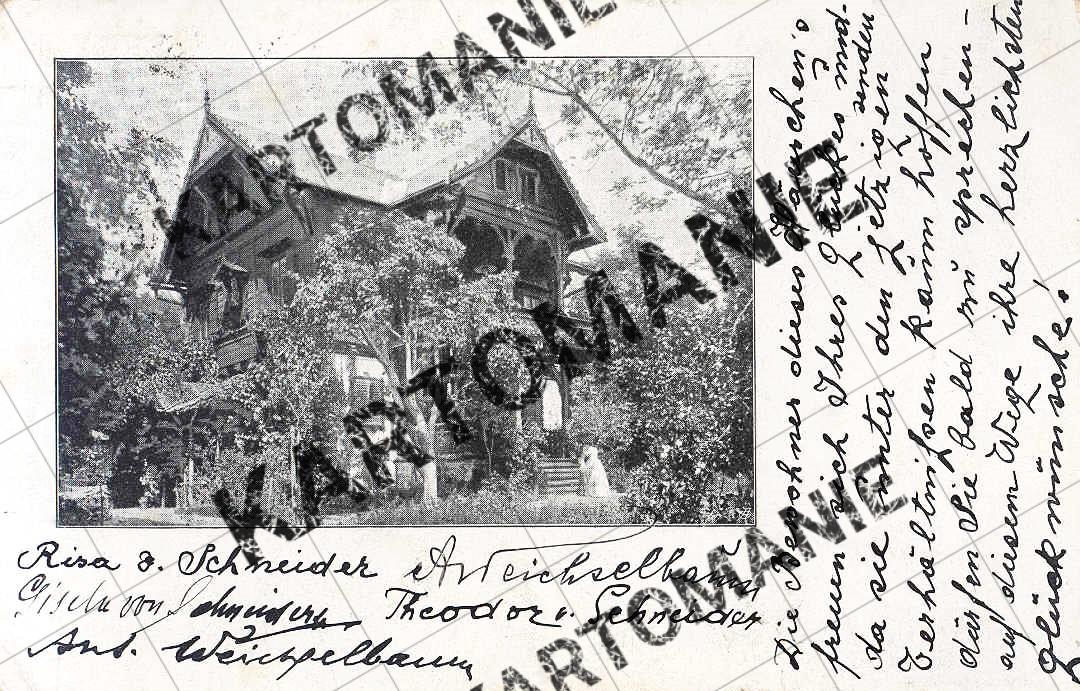 Die Bewohner dieses Häuschen's
freuen sich Ihres Glückes und
da sie unter den jetzigen
Verhältnissen kaum hoffen
dürfen Sie bald zu sprechen -
auf diesem Wege ihre herzlichsten
Glückwünsche!
Risa v. Schneider
A Weichselbaum
Gisela von Schneidern
Theodor v. Schneider
Ant. Weichselbaum
KARTOMANIE
KARTOMANIE
KARTOMANIE
KARTOMANIE